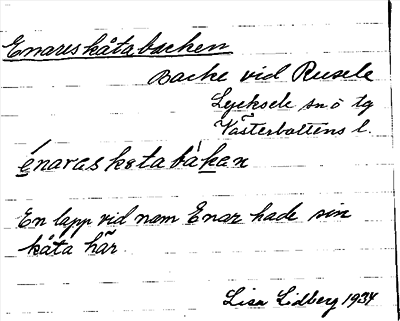 Enareskåtabacken
Backe vid Rusele
Lycksele sn o tg
Västerbottens l.
énaraskatabákan
En lapp vid nam Enar hade sin
kåta här.
Lisa Lidberg 1934